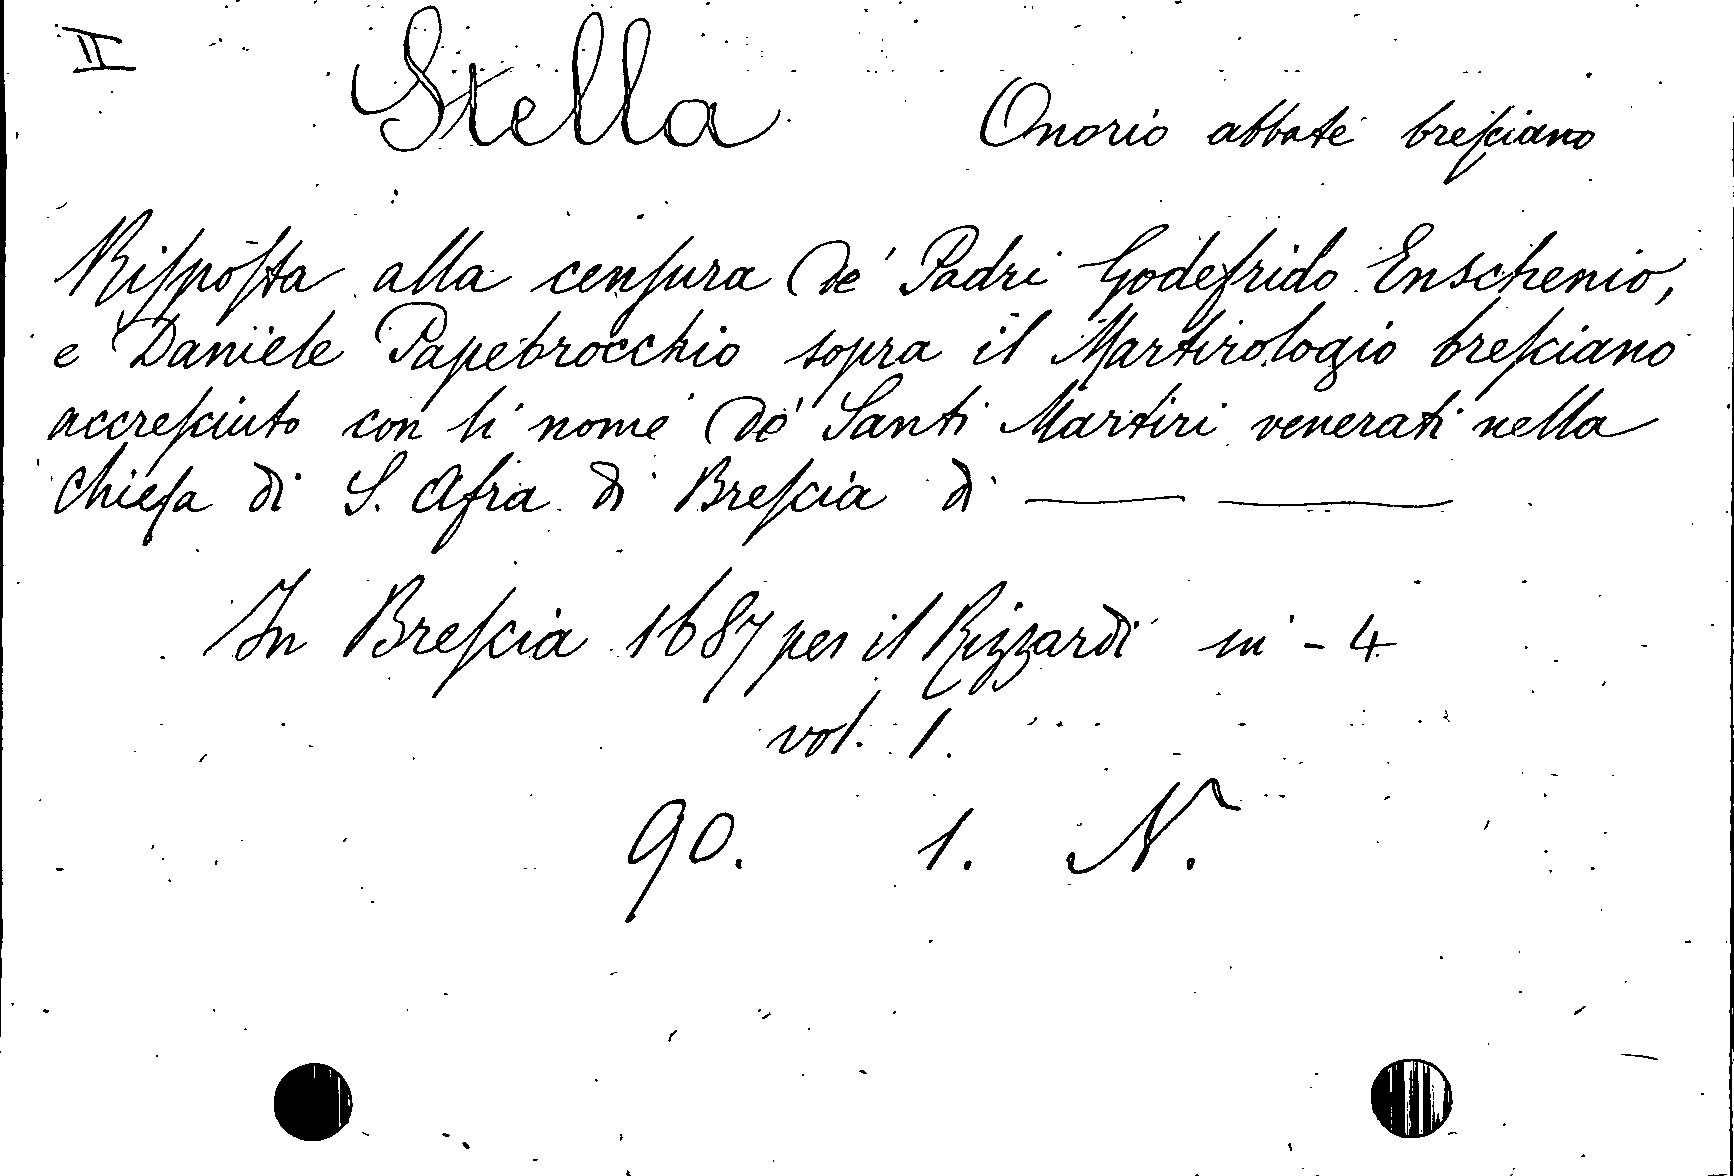 II
Stella Onorio abbate bresciano
Risposta alla censura de' Padri Godefrido Enschenio,
e Daniele Papebrocchio sopra il Martirologio bresciano
accresciuto con li nome de' Santi Martiri venerati nella
Chiesa di S. Afra di Brescia di ——— ———
In Brescia 1687 per il Rizzardi in - 4
vol. 1.
90. 1. N.